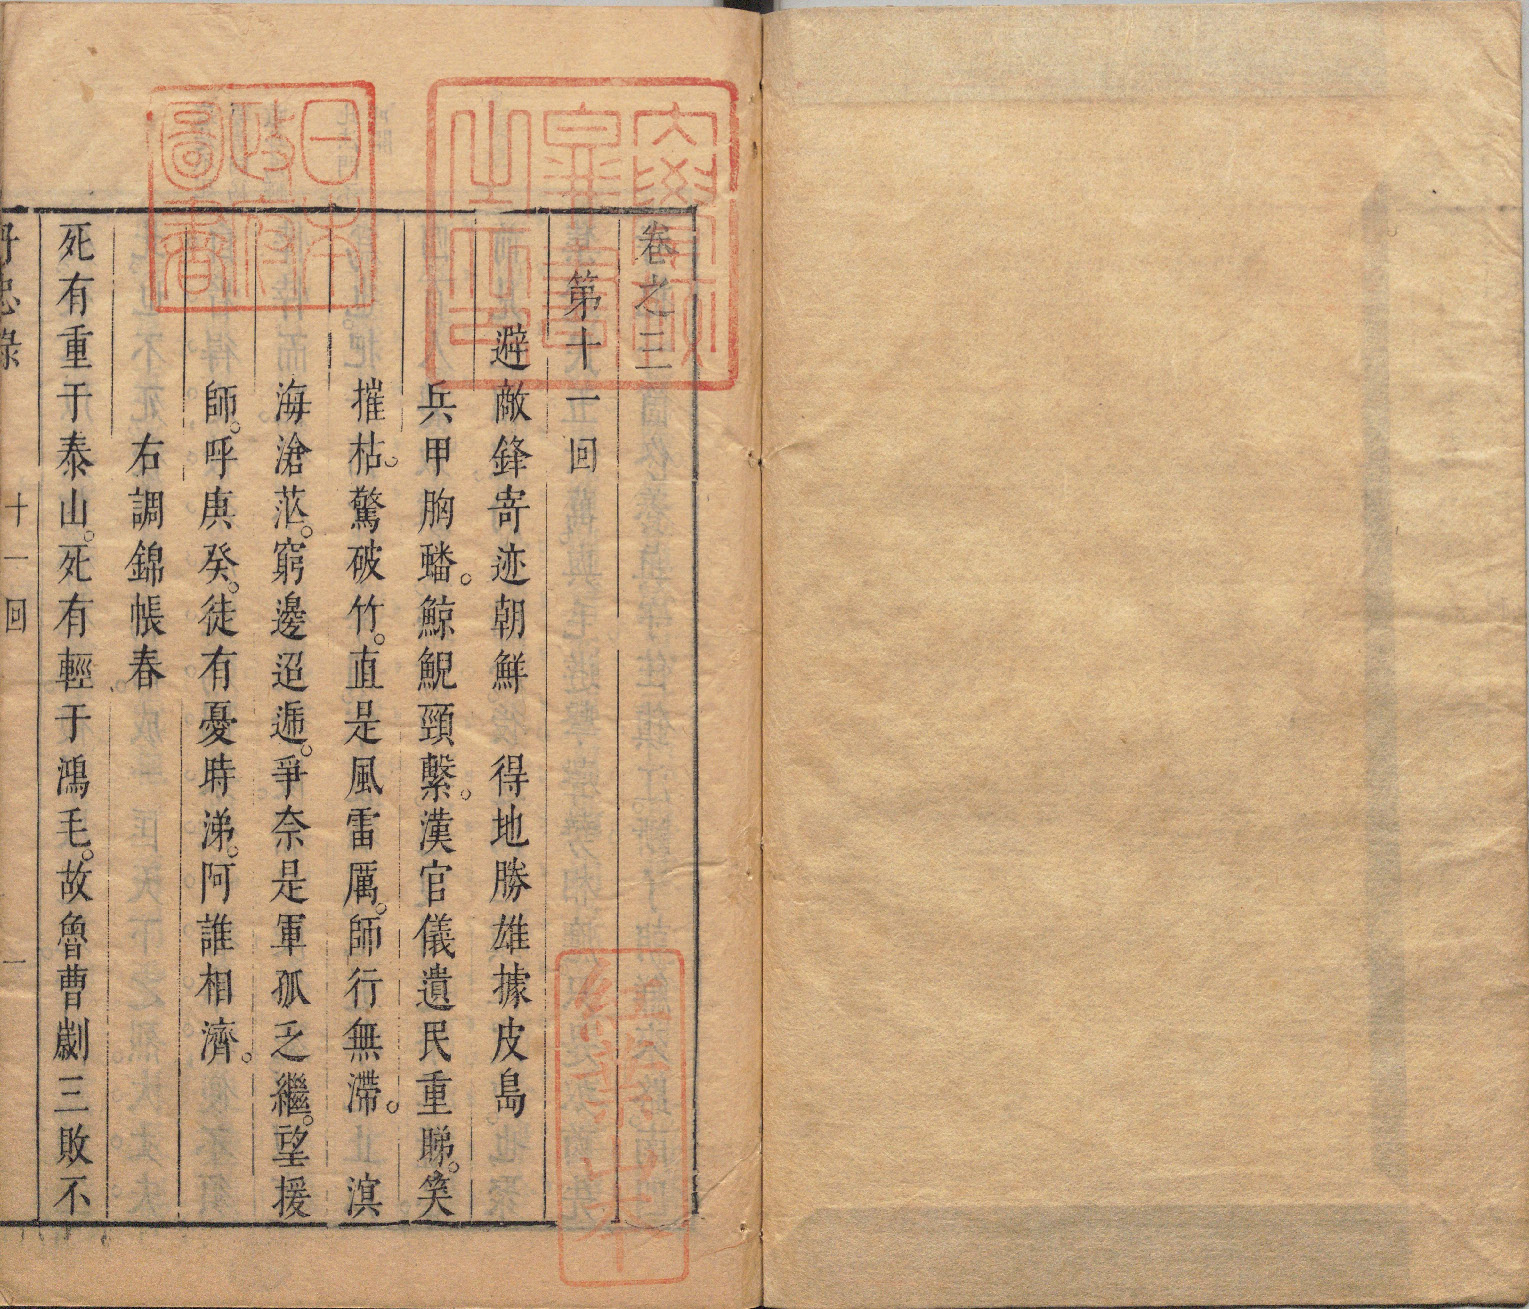 卷之三
第十一回
避敵鋒寄迹朝鮮　得地勝雄據皮島
兵甲胸蟠。鯨鯢頸繫。漢官儀遺民重睇。笑
摧枯。驚破竹。直是風雷厲。師行無滯。　溟
海滄茫。窮邊迢遞。爭奈是軍孤乏繼。望援
師。呼庚癸。徒有憂時涕。阿誰相濟。
右調錦帳春
死有重于泰山。死有輕于鴻毛。故魯曹劌三敗不
丹忠錄　十一回　一
日本政府圖書